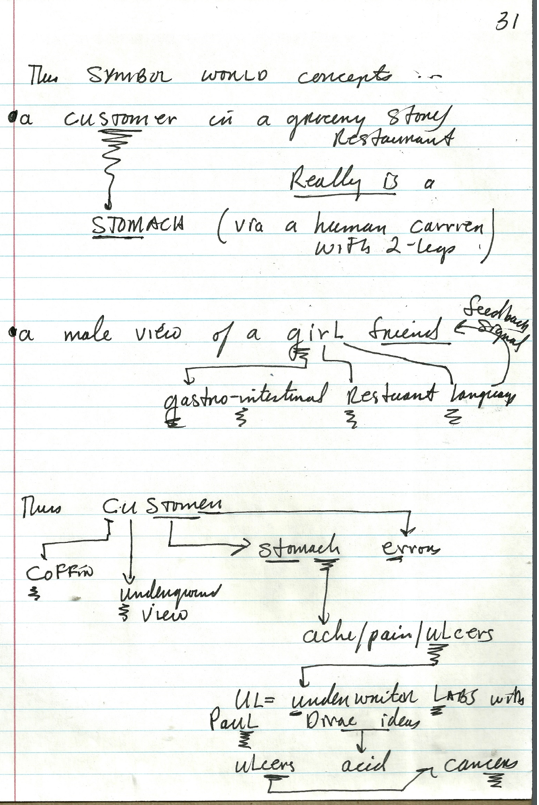 31
Thus SYMBOL WORLD concepts :-
• a customer in a grocery store
Restaurant
Really is a
STOMACH (via a human carrier
with 2-legs)
• a male view of a girl friend
feedback
signal
gastro-intestinal Restuant language
Thus CUStomer
stomach errors
COFFIN
underground
view
ache/pain/uLcers
UL= underwriter LABS with
PauL Dirac ideas
uLcers acid cancers